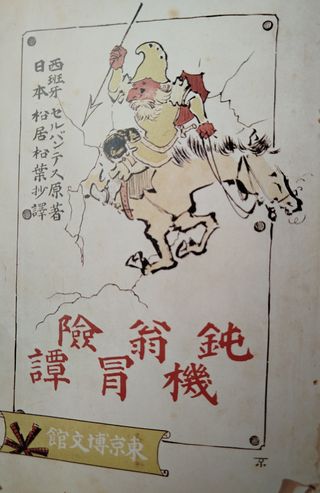 西班牙 セルバンテス原著
日本 松居松葉抄譯
鈍機翁冒險譚
東京博文館